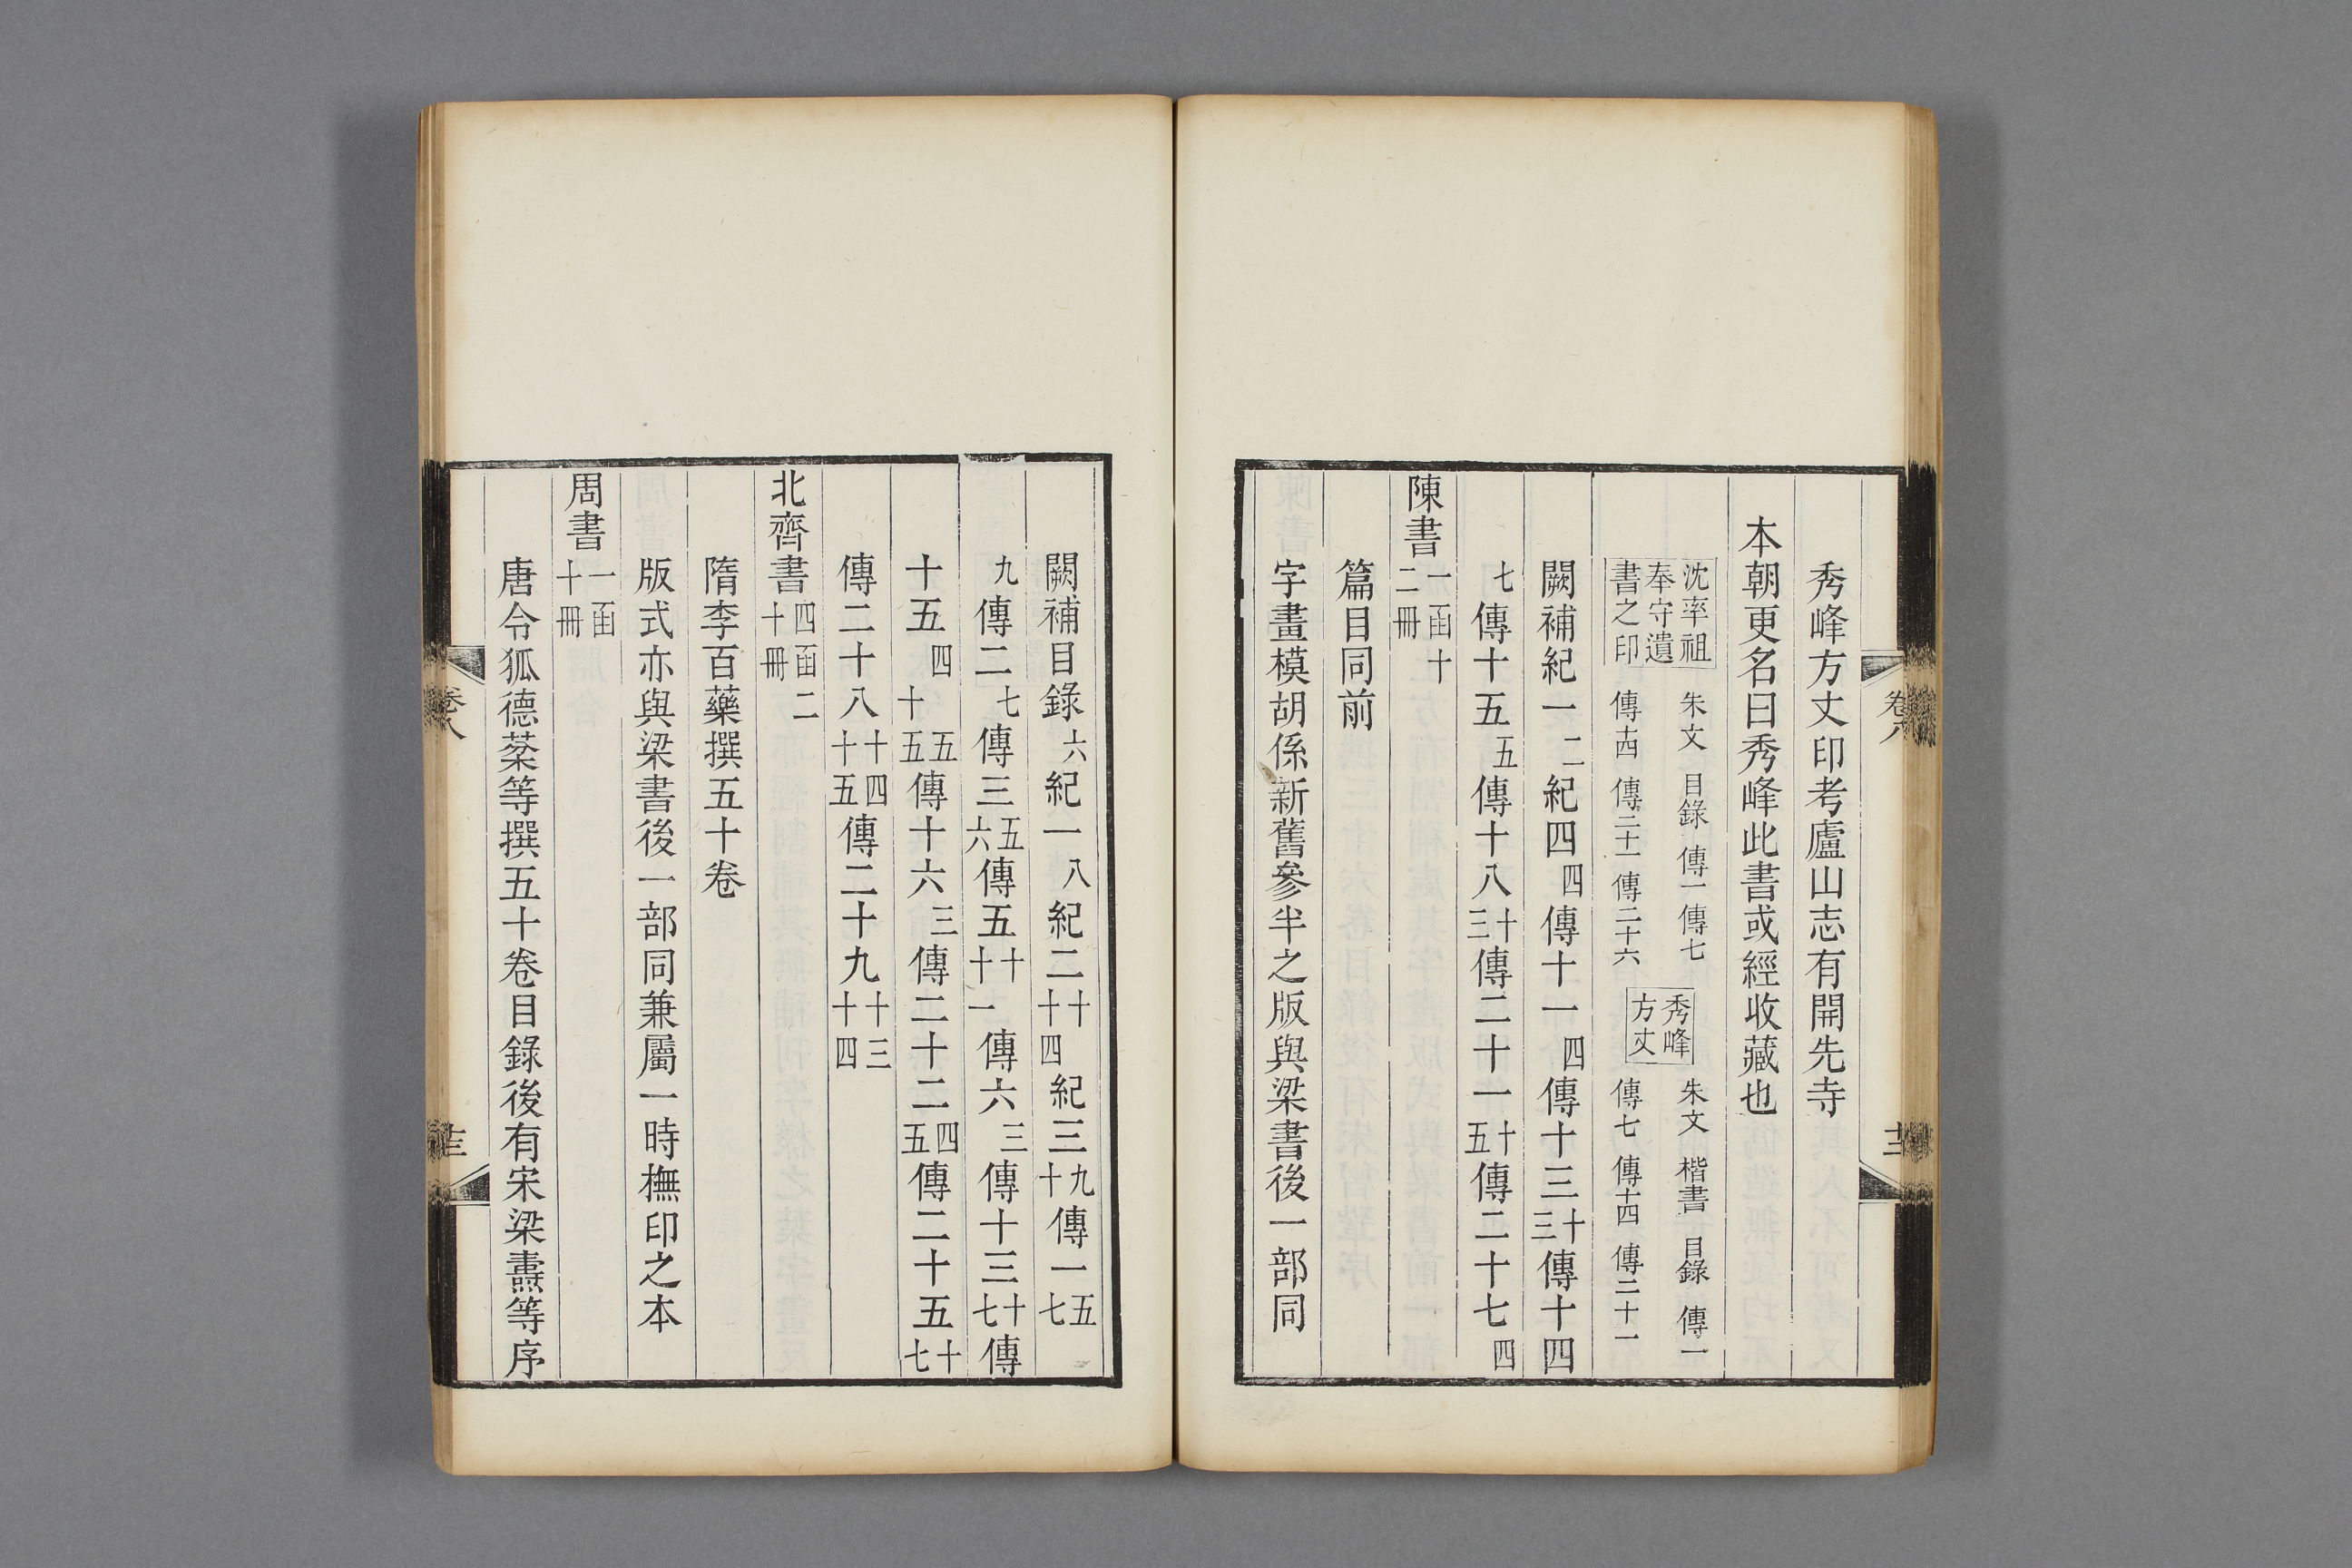 秀峰方丈印考廬山志有開先寺
本朝更名曰秀峰此書或經收藏也
沈率祖
奉守遺
書之印
朱文 目錄 傳一 傳七
傳十四 傳二十一 傳二十六
秀峰
方丈
朱文 楷書 目錄 傳一
傳七 傳十四 傳二十一
闕補紀一二紀四四傳十一四傳十三十三傳十四
七傳十五五傳十八十三傳二十一十五傳二十七四
陳書一函十二冊
篇目同前
字畫模胡係新舊參半之版與梁書後一部同
卷八
十二
闕補目錄六紀一八紀二十十四紀三九十傳一五七
九傳二七傳三五六傳五十十一傳六三傳十三十七傳
十五四十五十五傳十六三傳二十二四五傳二十五十七
傳二十八十四十五傳二十九十三十四
北齊書四函二十冊
隋李百藥撰五十卷
版式亦與梁書後一部同兼屬一時橅印之本
周書一函十冊
唐令狐德棻等撰五十卷目錄後有宋梁燾等序
卷八
十三